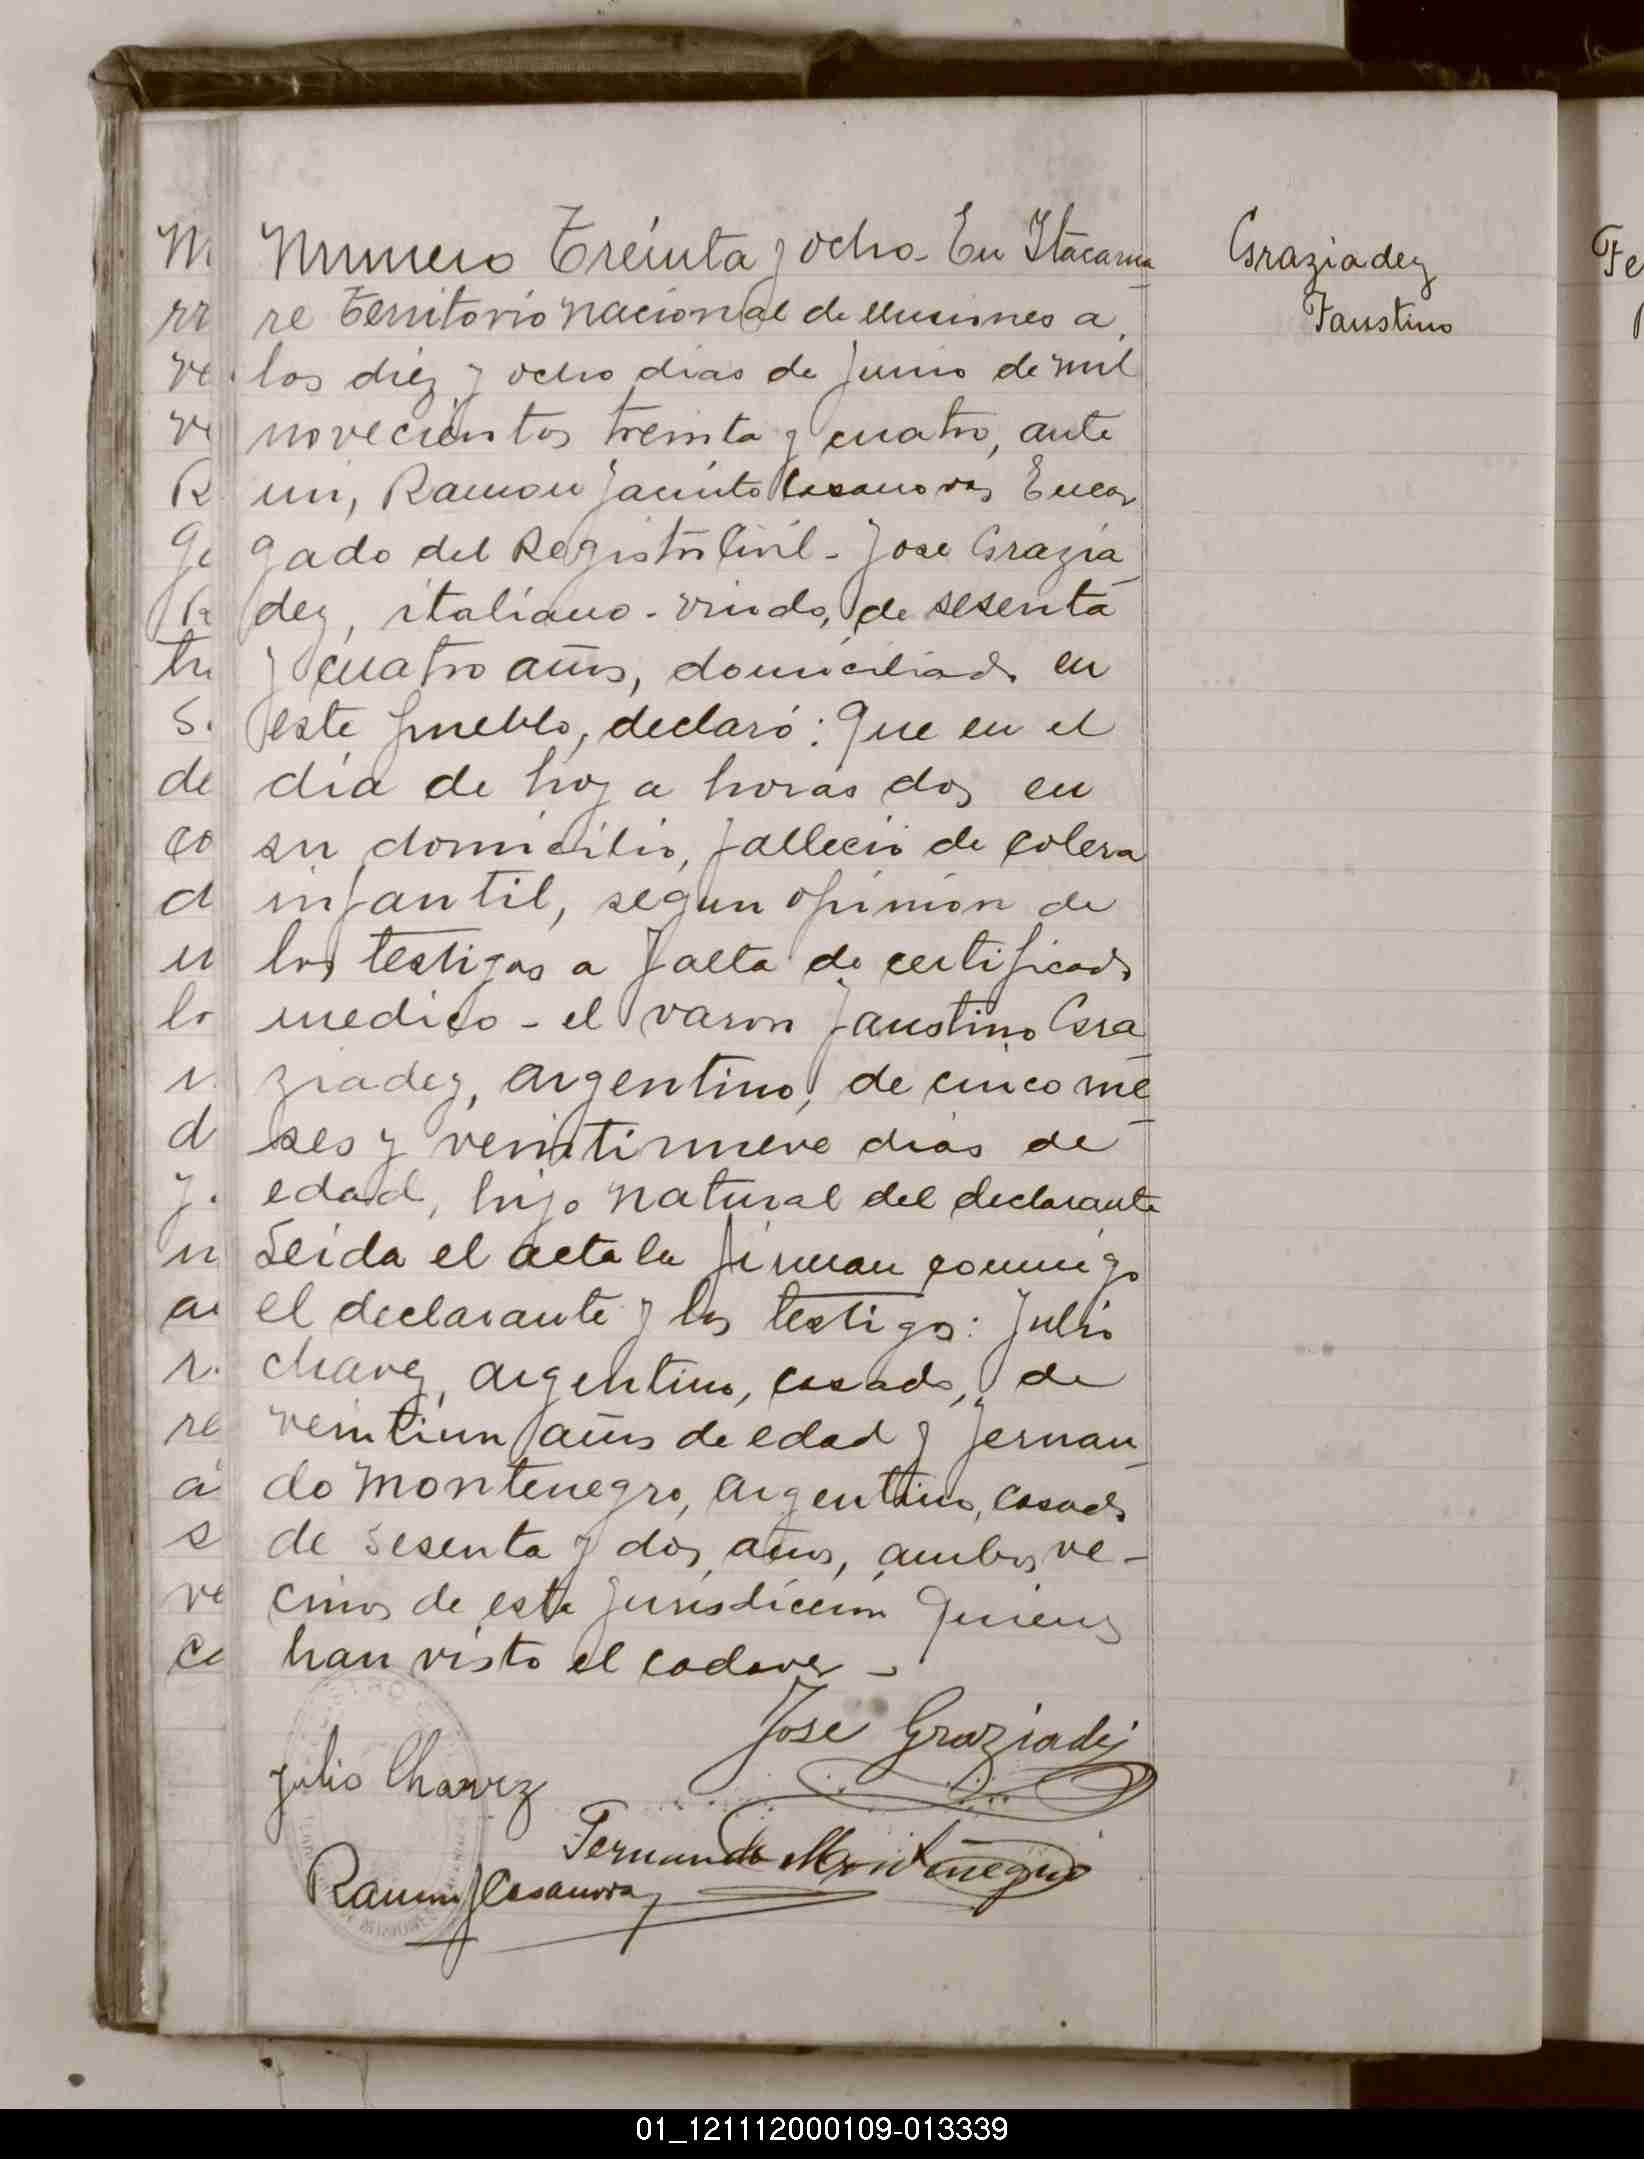 Graziadey
Faustino
Numero Treinta y ocho - En Itacarua
re territorio nacional de Misiones a
los diez y ocho dias de Junio de mil
novecientos treinta y cuatro, ante
mi, Ramon Jacinto Casanovas Encar
gado del Registro Civil - Jose Grazia
dey, italiano - viudo, de sesenta
y cuatro años, domiciliado en
este pueblo, declaró: Que en el
día de hoy a horas dos en
su domicilio, fallecio de colera
infantil, segun opinion de
los testigos a falta de certificado
medico - el varon Faustino Gra
ziadey, argentino, de cinco me
ses y veintinueve dias de
edad, hijo natural del declarante
Leida el acta la firman conmigo
el declarante y los testigos: Julio
Chavez, argentino, casado, de
veintiun años de edad y Fernan
do Montenegro, argentino, casado
de sesenta y dos años, ambos ve-
cinos de esta jurisdiccion quienes
han visto el cadaver -
Jose Graziadej
Julio Chavez
Fernando Montenegro
Ramon J Casanovas
01_121112000109-013339